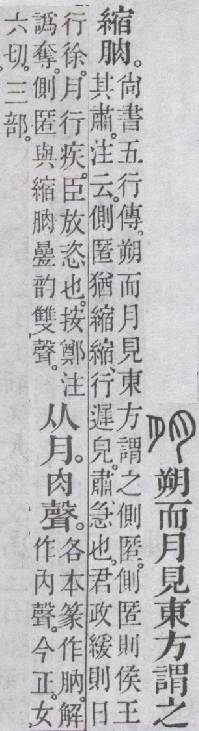 朔而月見東方謂之
縮朒。尙書五行傳。朔而月見東方謂之側匿。側匿則侯王
其肅。注云。側匿猶縮縮。行遲皃。肅、急也。君政緩則日
行徐。月行疾。臣放恣也。按鄭注
譌奪。側匿與縮朒曡韵雙聲。
从月。肉聲。各本篆作朒。解
作內聲。今正。女
六切。三部。